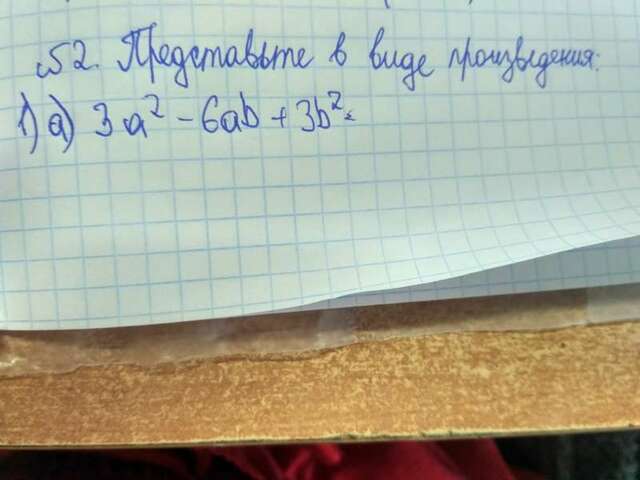 №2. Представьте в виде произведения:
1) а) 3a² - 6ab + 3b² =